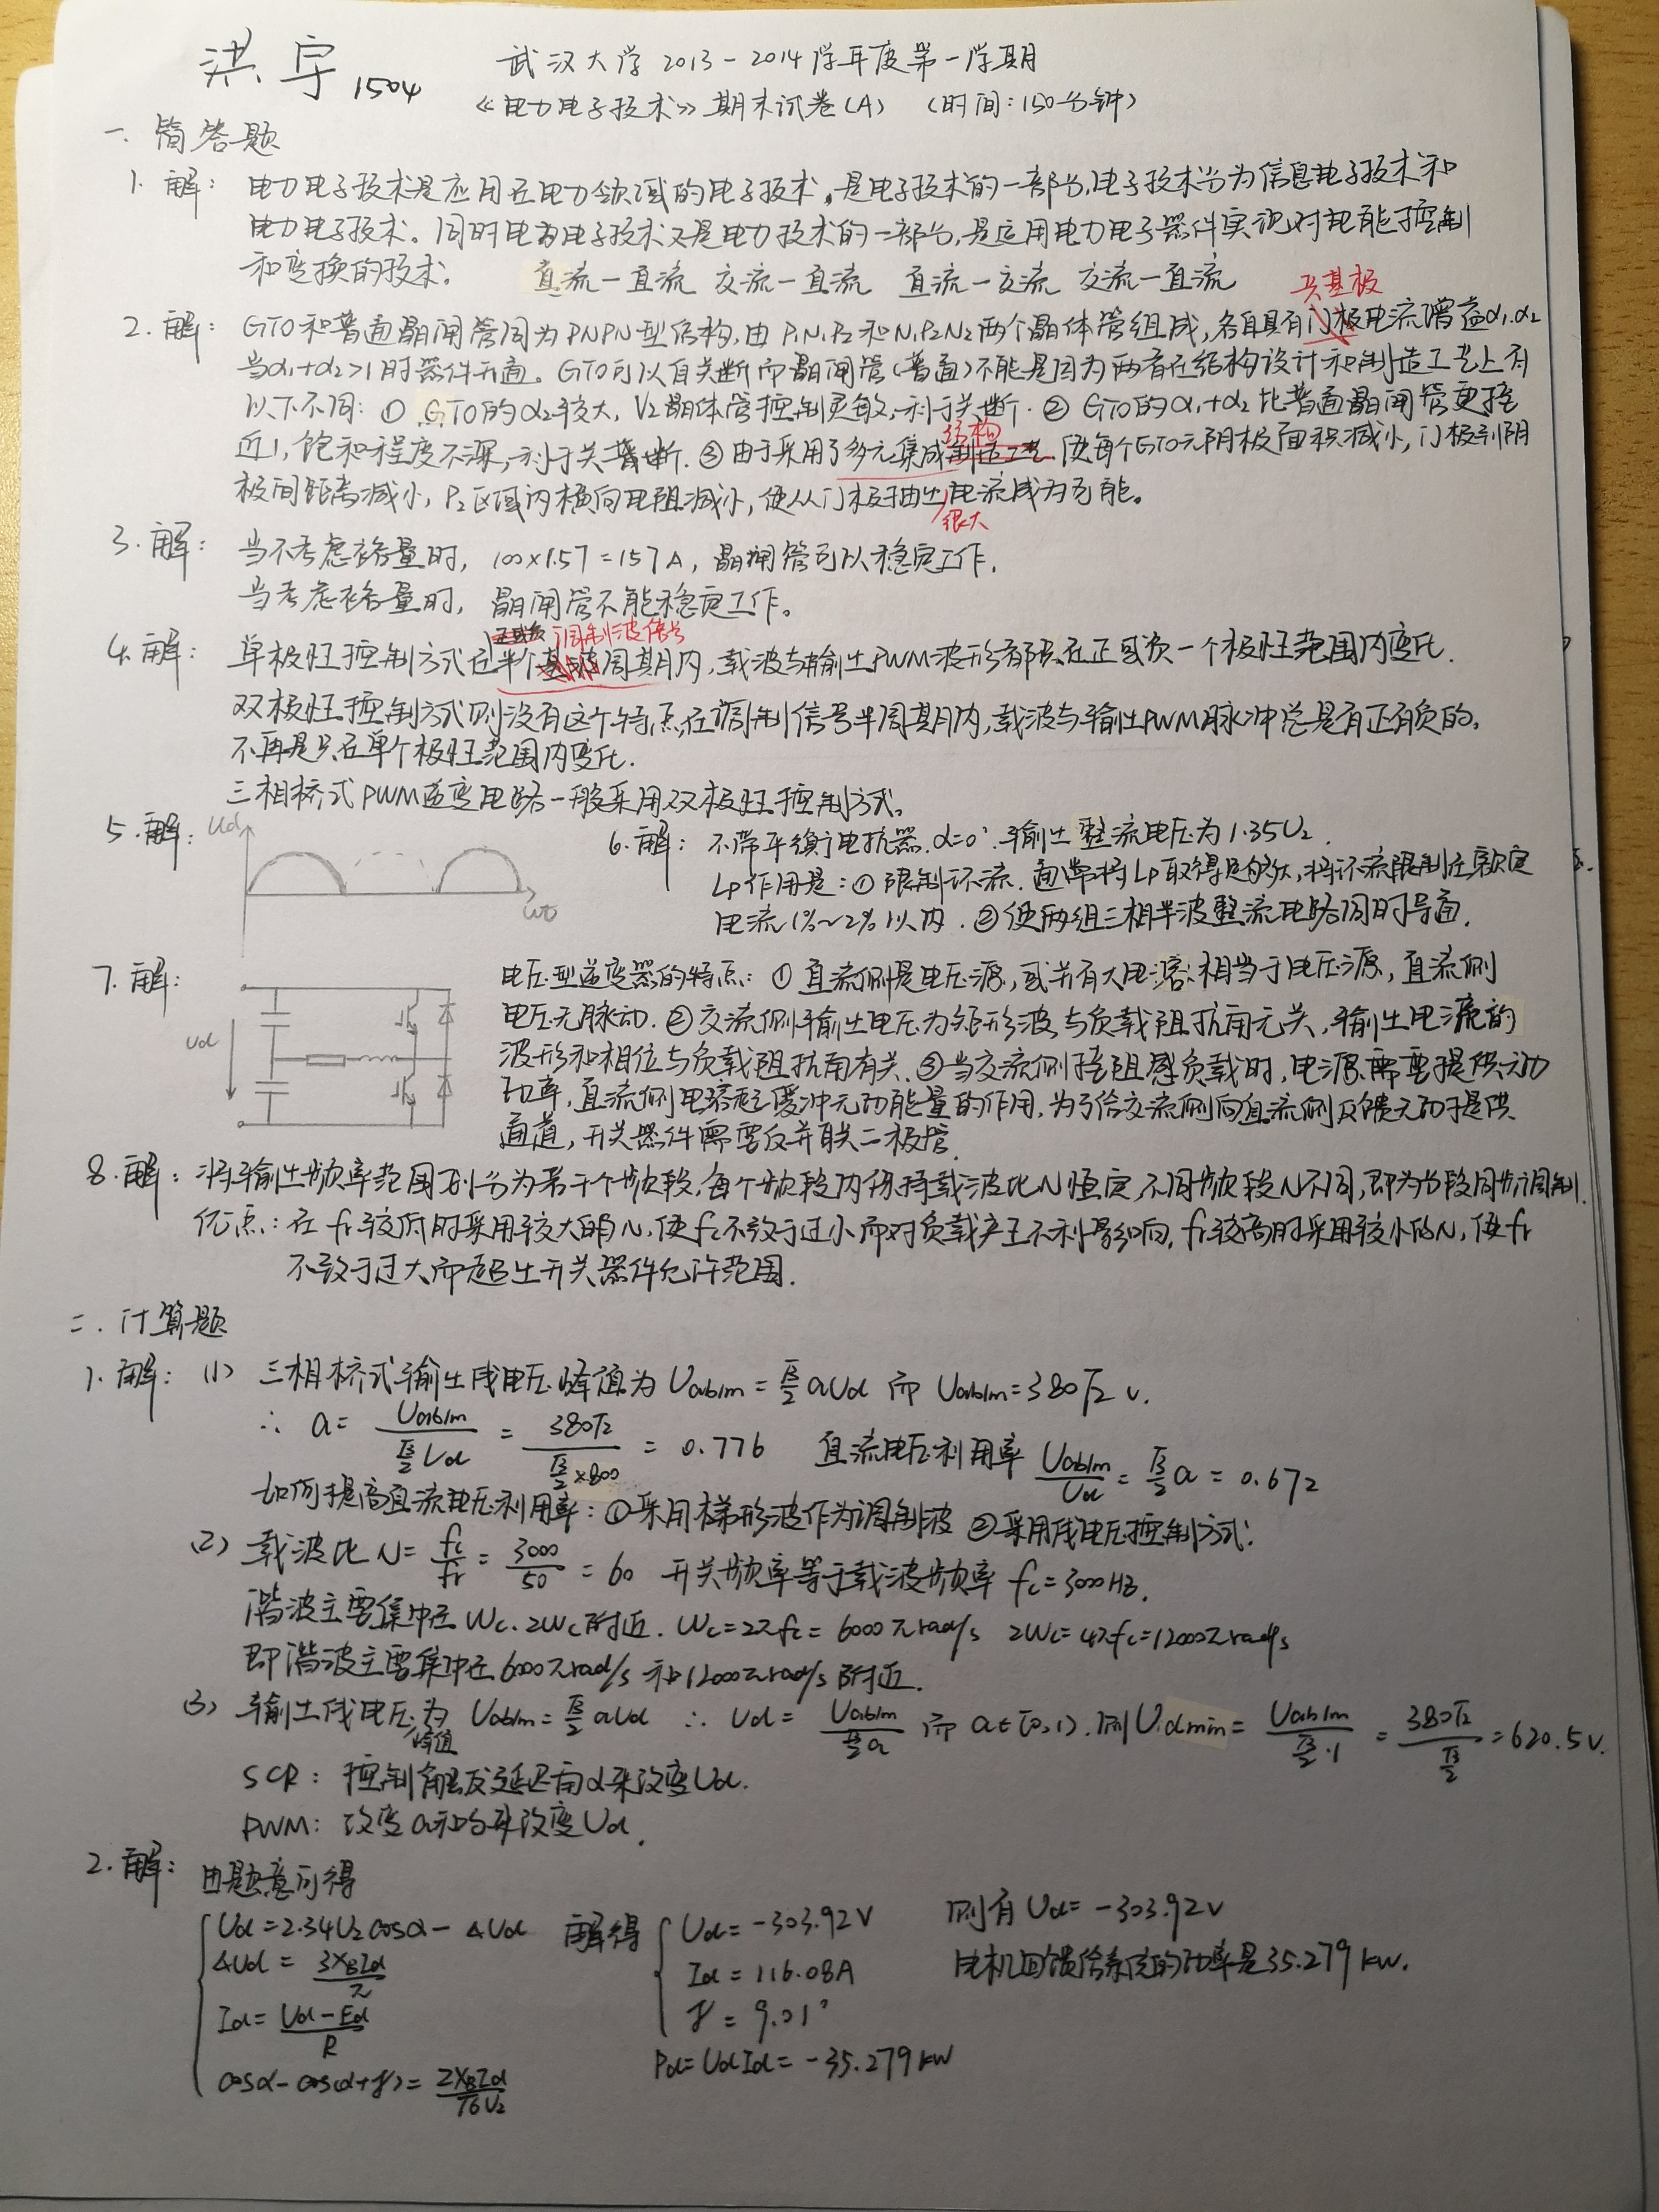 洪宇 1504
武汉大学 2013-2014学年度第一学期
《电力电子技术》期末试卷(A) (时间:150分钟)
一. 简答题
1. 解: 电力电子技术是应用在电力领域的电子技术,是电子技术的一部分,电子技术分为信息电子技术和
电力电子技术。同时电力电子技术又是电力技术的一部分,是运用电力电子器件实现对电能控制
和变换的技术。 直流-直流 交流-直流 直流-交流 交流-直流
共基极
2. 解: GTO和普通晶闸管同为PNPN型结构,由P₁N₁P₂和N₁P₂N₂两个晶体管组成,各自具有门极电流增益α₁.α₂
当α₁+α₂>1时器件开通。GTO可以自关断而晶闸管(普通)不能是因为两者在结构设计和制造工艺上有
以下不同: ① GTO的α₂较大, V₂晶体管控制灵敏,利于关断. ② GTO的α₁+α₂比普通晶闸管更接
结构
近1, 饱和程度不深,利于关断. ③由于采用了多元集成制造工艺.使每个GTO元阴极面积减小,门极到阴
极间距离减小, P₂区域内横向电阻减小,使从门极抽出电流成为可能。
很大
3. 解: 当不考虑裕量时, 100×1.57=157A, 晶闸管可以稳定工作.
当考虑裕量时, 晶闸管不能稳定工作。
调制波信号
4. 解: 单极性控制方式在半个基波周期内,载波与输出PWM波形都只在正或负一个极性范围内变化.
双极性控制方式则没有这个特点,在调制信号半周期内,载波与输出PWM脉冲总是有正有负的,
不再是只在单个极性范围内变化.
三相桥式PWM逆变电路一般采用双极性控制方式。
5. 解: Ud
ωt
6. 解: 不带平衡电抗器.α=0°.输出整流电压为1.35U₂.
Lp作用是:① 限制环流.通常将Lp取得足够大,将环流限制在额定
电流1%~2%以内. ②使两组三相半波整流电路同时导通.
7. 解: Ud
电压型逆变器的特点: ① 直流侧是电压源,或并有大电容.相当于电压源,直流侧
电压无脉动. ②交流侧输出电压为矩形波与负载阻抗角无关,输出电流的
波形和相位与负载阻抗角有关.③当交流侧接阻感负载时,电源需要提供无功
功率,直流侧电容起缓冲无功能量的作用,为了给交流侧向直流侧反馈无功提供
通道,开关器件需要反并联二极管.
8. 解: 将输出频率范围划分为若干个频段,每个频段内保持载波比N恒定,不同频段N不同,即为分段同步调制.
优点: 在fr较低时采用较大的N,使fc不致于过小而对负载产生不利影响, fr较高时采用较小的N,使fr
不致于过大而超出开关器件允许范围.
二. 计算题
1. 解: (1) 三相桥式输出线电压峰值为 Uab1m = √3/2 aUd 而 Uab1m=380√2 v.
∴ a = Uab1m/(√3/2 Ud) = 380√2/(√3/2×800) = 0.776 直流电压利用率 Uab1m/Ud = √3/2 a = 0.672
如何提高直流电压利用率: ①采用梯形波作为调制波 ②采用线电压控制方式.
(2) 载波比 N = fc/fr = 3000/50 = 60 开关频率等于载波频率 fc=3000Hz.
谐波主要集中在 Wc. 2Wc附近. Wc=2πfc=6000πrad/s 2Wc=4πfc=12000πrad/s
即谐波主要集中在6000πrad/s 和12000πrad/s附近.
(3) 输出线电压峰值为 Uab1m = √3/2 aUd ∴ Ud = Uab1m/(√3/2 a) 而 a∈[0,1). 则 Udmin = Uab1m/(√3/2·1) = 380√2/(√3/2) = 620.5V.
SCR: 控制触发延迟角α来改变Ud.
PWM: 改变a来改变Ud.
2. 解: 由题意可得
Ud=2.34U₂cosα-ΔUd 解得 Ud=-303.92V 则有 Ud=-303.92V
ΔUd = 3XBId/π Id=116.08A 电机回馈给系统的功率是35.279kW.
Id = (Ud-Ed)/R γ=9.01°
cosα-cos(α+γ) = 2XBId/√6U₂ Pd=UdId=-35.279kW